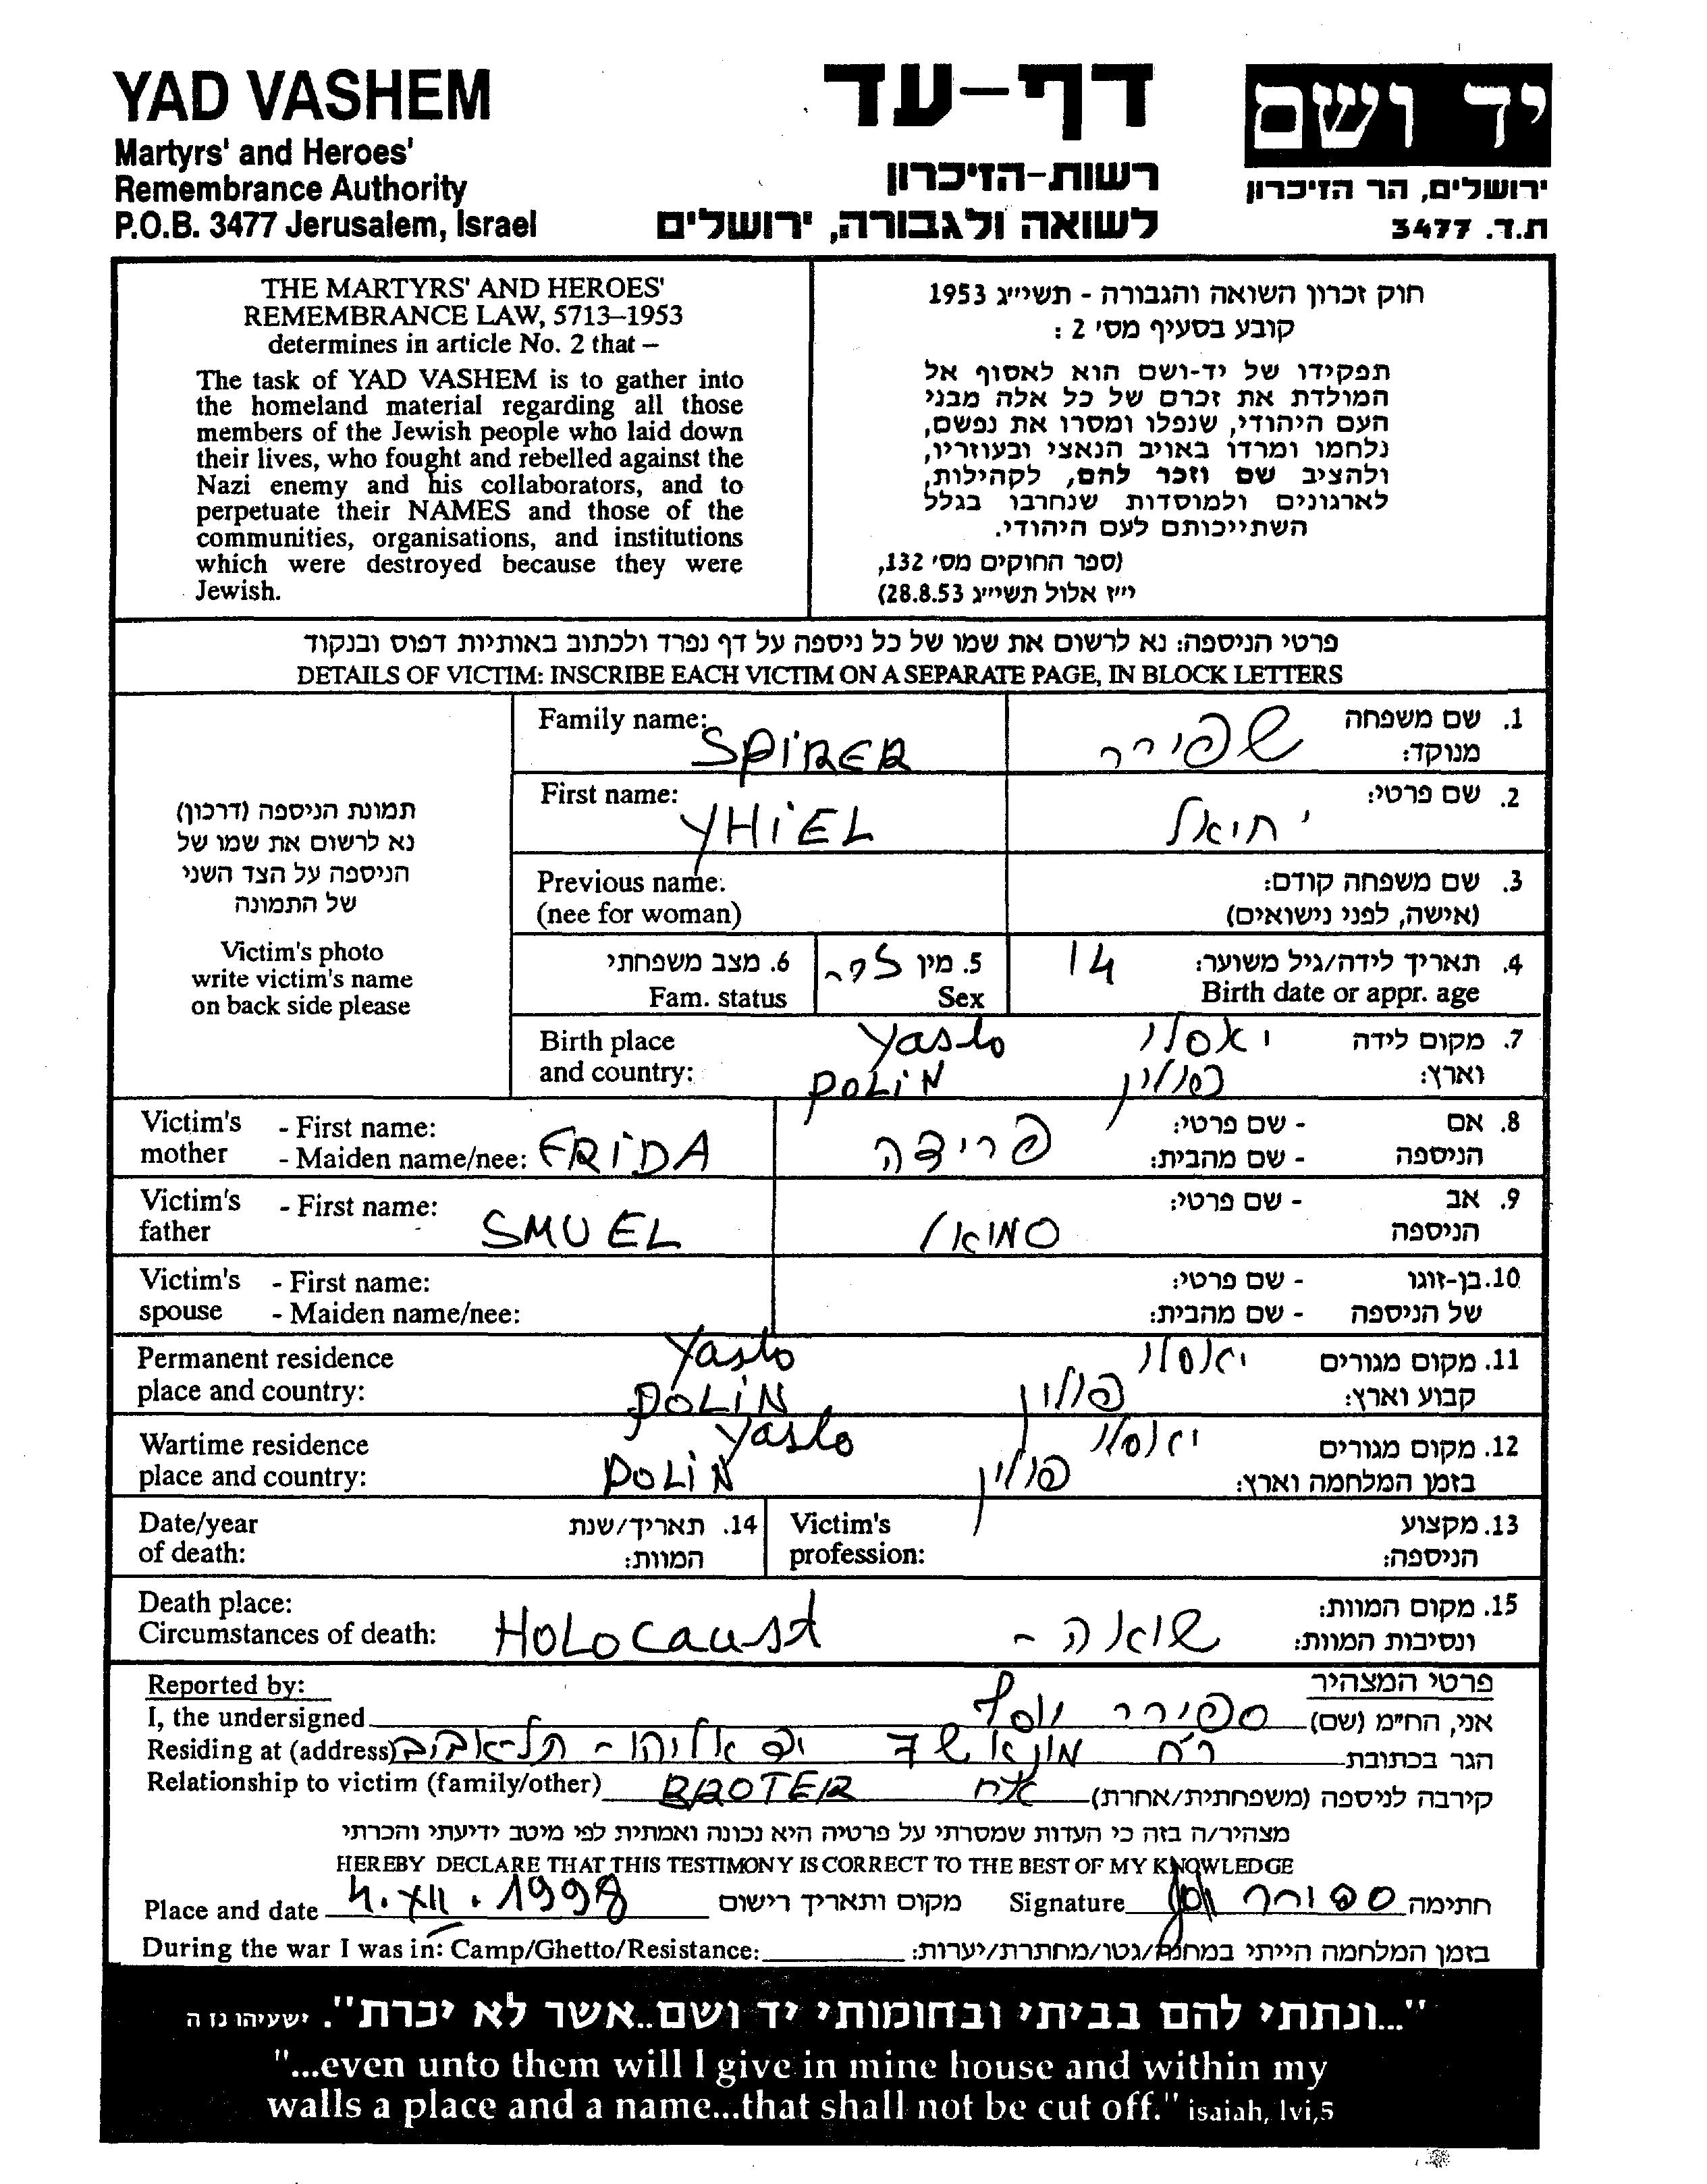 YAD VASHEM
Martyrs' and Heroes'
Remembrance Authority
P.O.B. 3477 Jerusalem, Israel
דף-עד
רשות-הזיכרון
לשואה ולגבורה, ירושלים
יד ושם
ירושלים, הר הזיכרון
ת.ד. 3477
THE MARTYRS' AND HEROES'
REMEMBRANCE LAW, 5713–1953
determines in article No. 2 that –
The task of YAD VASHEM is to gather into
the homeland material regarding all those
members of the Jewish people who laid down
their lives, who fought and rebelled against the
Nazi enemy and his collaborators, and to
perpetuate their NAMES and those of the
communities, organisations, and institutions
which were destroyed because they were
Jewish.
חוק זכרון השואה והגבורה - תשי״ג 1953
קובע בסעיף מס׳ 2 :
תפקידו של יד-ושם הוא לאסוף אל
המולדת את זכרם של כל אלה מבני
העם היהודי, שנפלו ומסרו את נפשם,
נלחמו ומרדו באויב הנאצי ובעוזריו,
ולהציב שם וזכר להם, לקהילות,
לארגונים ולמוסדות שנחרבו בגלל
השתייכותם לעם היהודי.
(ספר החוקים מס׳ 132,
י״ז אלול תשי״ג 28.8.53)
פרטי הניספה: נא לרשום את שמו של כל ניספה על דף נפרד ולכתוב באותיות דפוס ובנקוד
DETAILS OF VICTIM: INSCRIBE EACH VICTIM ON A SEPARATE PAGE, IN BLOCK LETTERS
תמונת הניספה (דרכון)
נא לרשום את שמו של
הניספה על הצד השני
של התמונה
Victim's photo
write victim's name
on back side please
Family name: SPIRER שפירר 1. שם משפחה
מנוקד:
First name: YHIEL יחיאל 2. שם פרטי:
Previous name: 3. שם משפחה קודם:
(nee for woman) (אישה, לפני נישואים)
6. מצב משפחתי 5. מין זכר 14 4. תאריך לידה/גיל משוער:
Fam. status Sex Birth date or appr. age
Birth place Yaslo יאסלו 7. מקום לידה
and country: POLIN פולין וארץ:
Victim's - First name: - שם פרטי: 8. אם
mother - Maiden name/nee: FRIDA פרידה - שם מהבית: הניספה
Victim's - First name: - שם פרטי: 9. אב
father SMUEL סמואל הניספה
Victim's - First name: - שם פרטי: 10. בן-זוגו
spouse - Maiden name/nee: - שם מהבית: של הניספה
Permanent residence Yaslo יאסלו 11. מקום מגורים
place and country: POLIN פולין קבוע וארץ:
Wartime residence Yaslo יאסלו 12. מקום מגורים
place and country: POLIN פולין בזמן המלחמה וארץ:
Date/year 14. תאריך/שנת Victim's 13. מקצוע
of death: המוות: profession: הניספה:
Death place: 15. מקום המוות:
Circumstances of death: HOLOCAUST שואה - ונסיבות המוות:
Reported by: פרטי המצהיר
I, the undersigned ספירר יוסף אני, הח״מ (שם)
Residing at (address) רח יפ אליהו - תל-אביב הגר בכתובת
Relationship to victim (family/other) BROTER אח קירבה לניספה (משפחתית/אחרת)
מצהיר/ה בזה כי העדות שמסרתי על פרטיה היא נכונה ואמתית לפי מיטב ידיעתי והכרתי
HEREBY DECLARE THAT THIS TESTIMONY IS CORRECT TO THE BEST OF MY KNOWLEDGE
Place and date 4. XII. 1998 מקום ותאריך רישום Signature ספירר יוסף חתימה
During the war I was in: Camp/Ghetto/Resistance: בזמן המלחמה הייתי במחנה/גטו/מחתרת/יערות:
"...ונתתי להם בביתי ובחומותי יד ושם..אשר לא יכרת". ישעיהו נו ה
"...even unto them will I give in mine house and within my
walls a place and a name...that shall not be cut off." isaiah, lvi,5